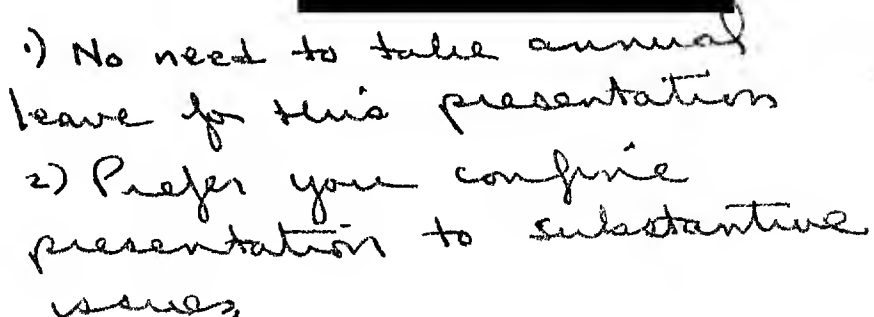 1) No need to take annual
leave for this presentation
2) Prefer you confine
presentation to substantive
issues,